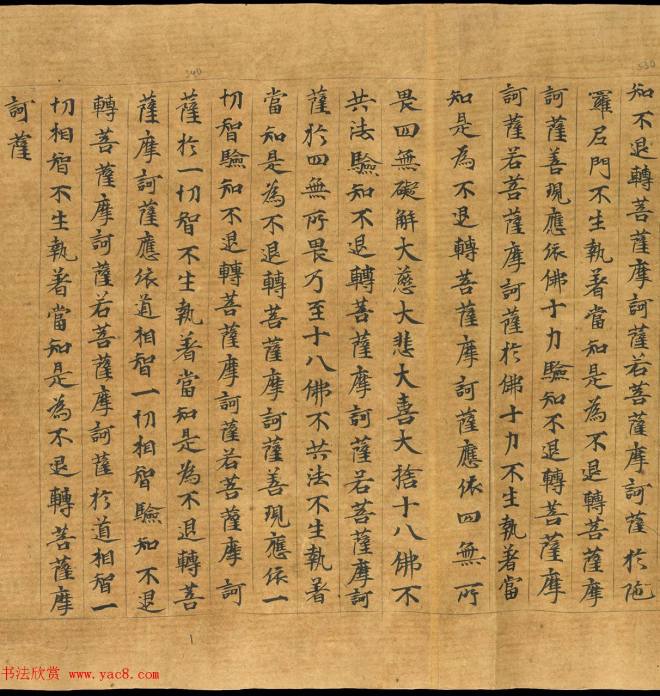 知不退轉菩薩摩訶薩若菩薩摩訶薩於陁
羅尼門不生執著當知是為不退轉菩薩摩
訶薩善現應依佛十力驗知不退轉菩薩摩
訶薩若菩薩摩訶薩於佛十力不生執著當
知是為不退轉菩薩摩訶薩應依四無所
畏四無礙解大慈大悲大喜大捨十八佛不
共法驗知不退轉菩薩摩訶薩若菩薩摩訶
薩於四無所畏乃至十八佛不共法不生執著
當知是為不退轉菩薩摩訶薩善現應依一
切智驗知不退轉菩薩摩訶薩若菩薩摩訶
薩於一切智不生執著當知是為不退轉菩
薩摩訶薩應依道相智一切相智驗知不退
轉菩薩摩訶薩若菩薩摩訶薩於道相智一
切相智不生執著當知是為不退轉菩薩摩
訶薩
530
540
书法欣赏 www.yac8.com